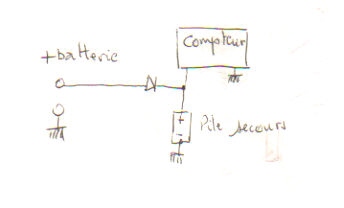 Compteur
+batterie
+
-
Pile secours